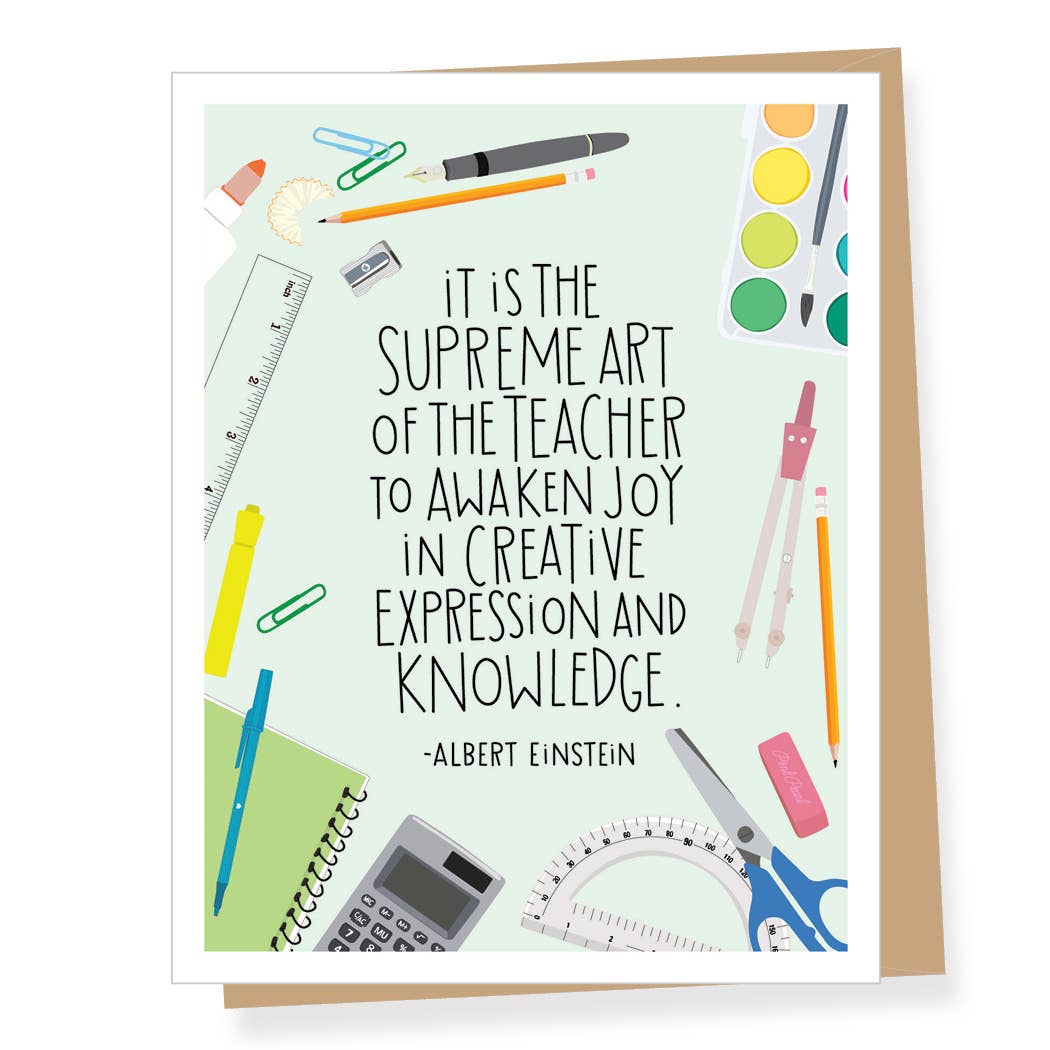 iT iS THE
SUPREME ART
OF THE TEACHER
TO AWAKEN JOY
iN CREATiVE
EXPRESSiON AND
KNOWLEDGE.
-ALBERT EiNSTEiN
inch
1
2
3
4
Pink Pearl
MRC M- M+
C/AC MU √
7 8 %
4
0 10 20 30 40 50 60 70 80 90 100 110 120 150 160
1 2